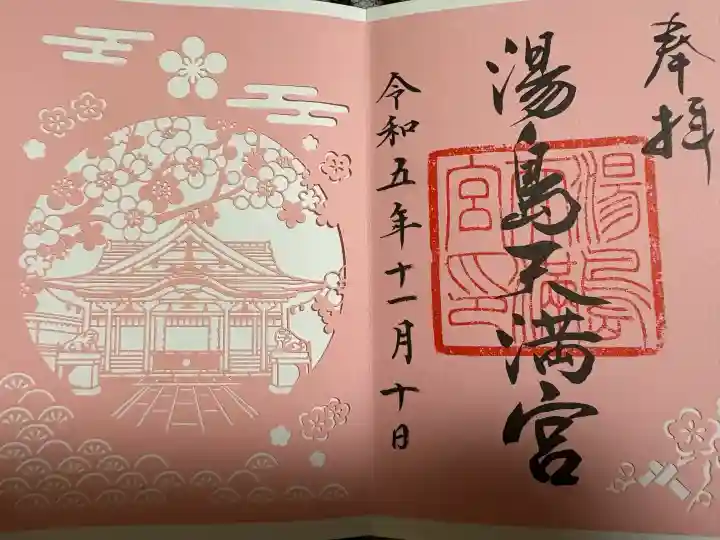 奉拝
湯島天満宮
令和五年十一月十日